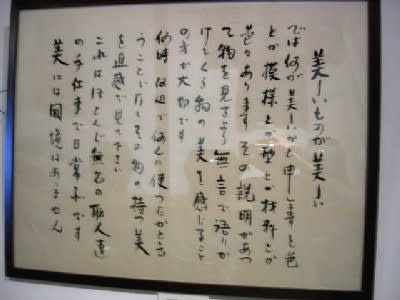 美しいものが美しい
では何が美しいかと申しますと色
とか模様とか型とか材料とか
色々あります その説明があつ
て物を見るより無言で語りか
けてくる物の美を感じること
の方が大切です
何時 何処で何んに使つたかとい
うことでなくその物の持つ美
を直感で見て下さい
これはほとんど無名の職人達
の手仕事で日常品です
美には国境はありません